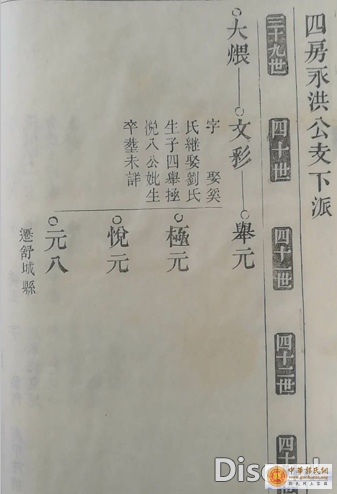 四房永洪公支下派
三十九世
四十世
四十一世
四十二世
四十
大煨
文彩
舉元
字 娶奚
氏繼娶劉氏
生子四舉極
悅八公妣生
卒塟未詳
極元
悅元
元八
遷舒城縣
Disc
中華郭氏網